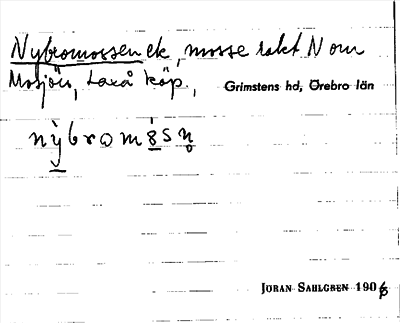 Nybromossen ek, mosse rakt N om
Mosjön, Laxå köp., Grimstens hd, Örebro län
nybromåsn
JÖRAN SAHLGREN 1906